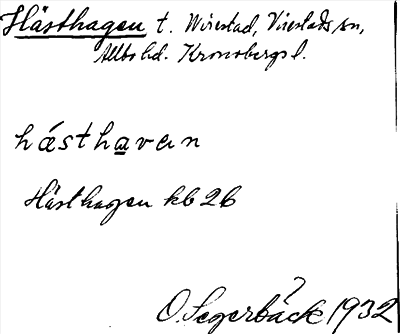 Hästhagen t. Wirestad, Virestads sn,
Allbo hd. Kronobergs l.
hǽsthavan
Hästhagen kb 26
O. Segerbäck 1932